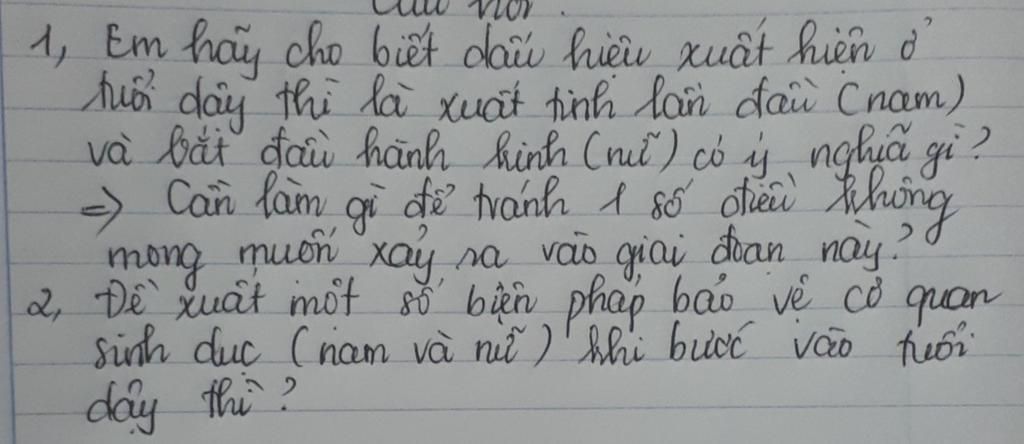 Câu hỏi:
1, Em hãy cho biết dấu hiệu xuất hiện ở
tuổi dậy thì là xuất tinh lần đầu (nam)
và bắt đầu hành kinh (nữ) có ý nghĩa gì?
=> Cần làm gì để tránh 1 số điều không
mong muốn xảy ra vào giai đoạn này?
2, Đề xuất một số biện pháp bảo vệ cơ quan
sinh dục (nam và nữ) khi bước vào tuổi
dậy thì?